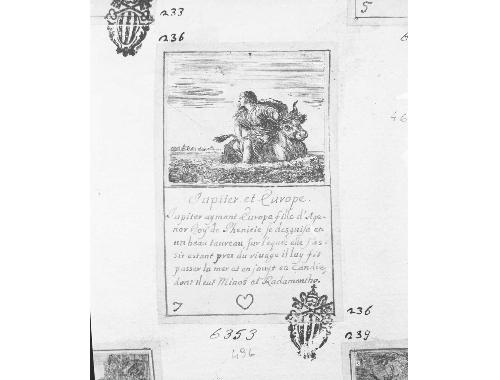 233
236
5
6
46
Jupiter et Europe.
Jupiter aymant Europe fille d'Age-
nor Roy de Phenicie se desguisa en
un beau taureau sur lequel elle s'as-
sit estant pres du rivage il luy fit
passer la mer et en jouyt en Candie,
dont il eut Minos et Radamanthe.
7
236
6353
239
496